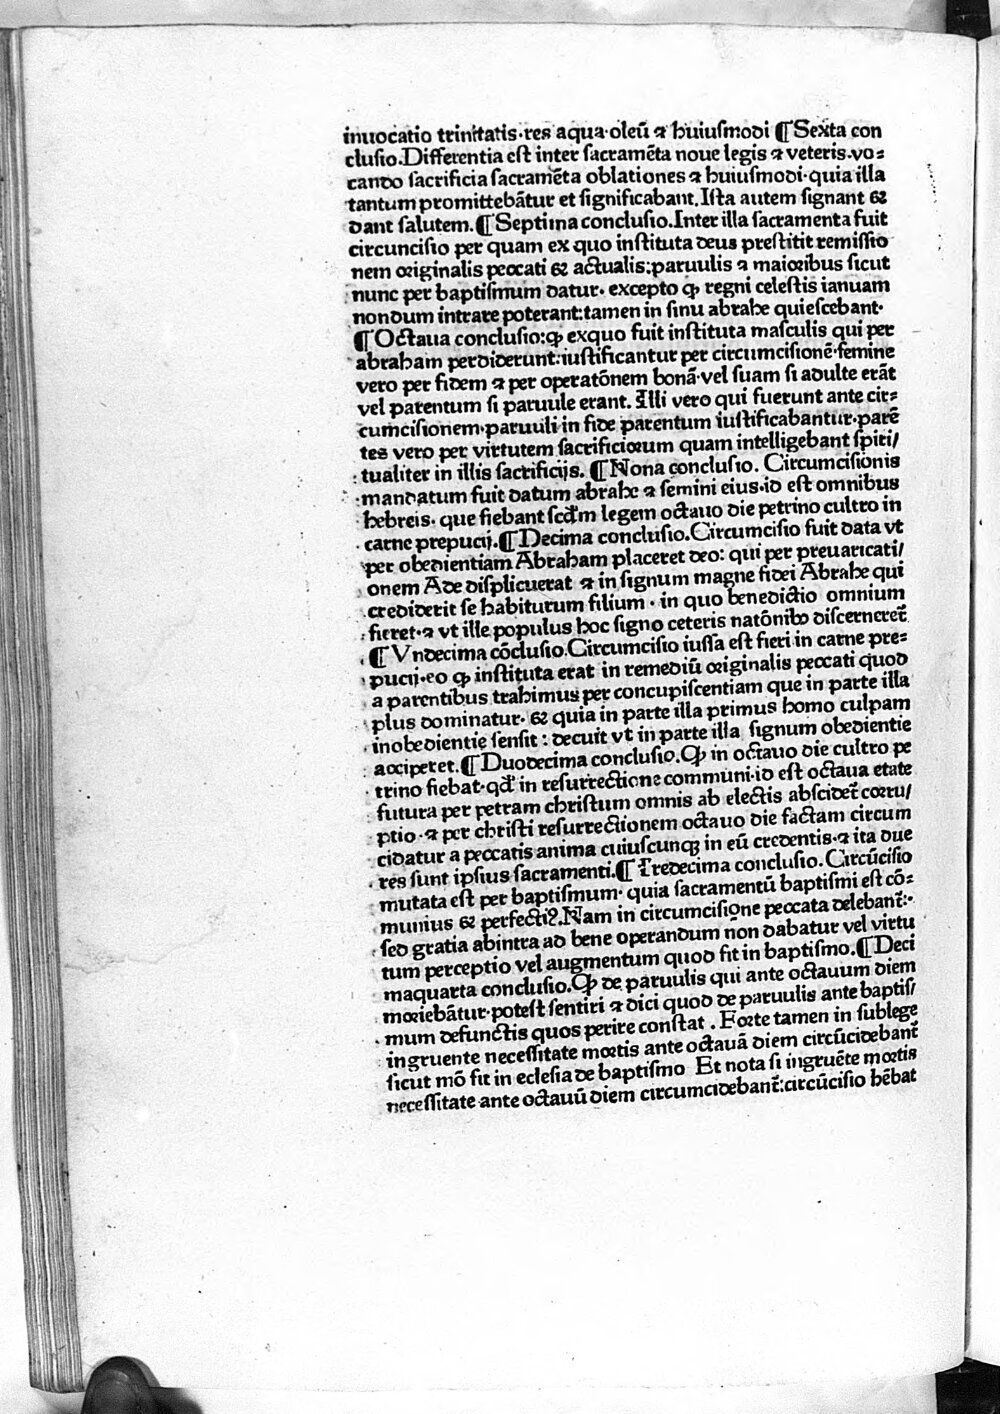 inuocatio trinitatis·res aqua·oleū ⁊ huiusmodi ¶ Sexta con
clusio.Differentia est inter sacramēta noue legis ⁊ veteris.vo=
cando sacrificia sacramēta oblationes ⁊ huiusmodi·quia illa
tantum promittebātur et significabant.Ista autem signant &
dant salutem.¶ Septima conclusio.Inter illa sacramenta fuit
circuncisio per quam ex quo instituta deus prestitit remissio
nem originalis peccati & actualis:paruulis ⁊ maioribus sicut
nunc per baptismum datur· excepto ꝙ regni celestis ianuam
nondum intrare poterant:tamen in sinu abrahe quiescebant·
¶ Octaua conclusio:ꝙ exquo fuit instituta masculis qui per
abraham perdiderunt:iustificantur per circumcisionē·femine
vero per fidem ⁊ per operatōnem bonā·vel suam si adulte erāt
vel parentum si paruule erant. Illi vero qui fuerunt ante cir=
cumcisionem·paruuli in fide parentum iustificabantur·parē
tes vero per virtutem sacrificiorum quam intelligebant spiri/
tualiter in illis sacrificijs. ¶ Nona conclusio. Circumcisionis
mandatum fuit datum abrahe ⁊ semini eius·id est omnibus
hebreis· que fiebant scd̄m legem octauo die petrino cultro in
carne prepucij.¶ Decima conclusio.Circumcisio fuit data vt
per obedientiam Abraham placeret deo: qui per preuaricati/
onem Ade displicuerat ⁊ in signum magne fidei Abrahe qui
crediderit se habiturum filium · in quo benedictio omnium
fieret·⁊ vt ille populus hoc signo ceteris natōnibꝰ discerneret̄
¶ Vndecima cōclusio.Circumcisio iussa est fieri in carne pre=
pucij·eo ꝙ instituta erat in remediū originalis peccati quod
a parentibus trahimus per concupiscentiam que in parte illa
plus dominatur· & quia in parte illa primus homo culpam
inobedientie sensit : decuit vt in parte illa signum obedientie
acciperet.¶ Duodecima conclusio.Ꝙ in octauo die cultro pe
trino fiebat·qd̄ in resurrectione communi·id est octaua etate
futura per petram christum omnis ab electis abscidet̄ corru/
ptio·⁊ per christi resurrectionem octauo die factam circum
cidatur a peccatis anima cuiuscunqꝫ in eū credentis·⁊ ita due
res sunt ipsius sacramenti.¶ Tredecima conclusio.Circūcisio
mutata est per baptismum· quia sacramentū baptismi est cō=
munius & perfectiꝰ.Nam in circumcisione peccata delebant̄:·
sed gratia abintra ad bene operandum non dabatur vel virtu
tum perceptio vel augmentum quod fit in baptismo.¶ Deci
maquarta conclusio.Ꝙ de paruulis qui ante octauum diem
moriebātur·potest sentiri ⁊ dici quod de paruulis ante baptis/
mum defunctis quos perire constat . Forte tamen in sublege
ingruente necessitate mortis ante octauā diem circūcidebant̄
sicut mō fit in eclesia de baptismo Et nota si ingruēte mortis
necessitate ante octauū diem circumcidebant̄:circūcisio hēbat